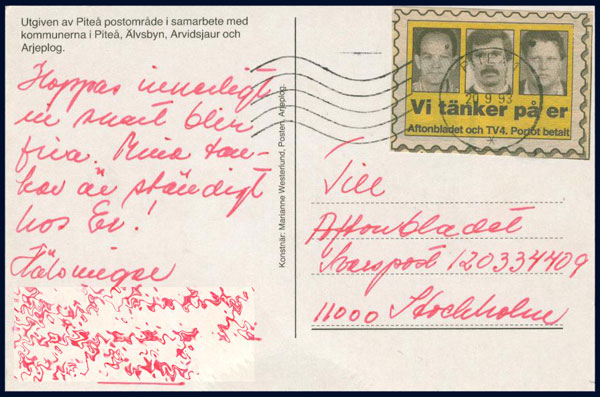 Utgiven av Piteå postområde i samarbete med
kommunerna i Piteå, Älvsbyn, Arvidsjaur och
Arjeplog.
Hoppas innerligt
ni snart blir
fria. Mina tan-
kar är ständigt
hos Er!
Hälsningar
Konstnär: Marianne Westerlund, Posten, Arjeplog.
20.9.93
Vi tänker på er
Aftonbladet och TV4. Portot betalt
Till
Aftonbladet
Svarspost 120334409
11000 Stockholm